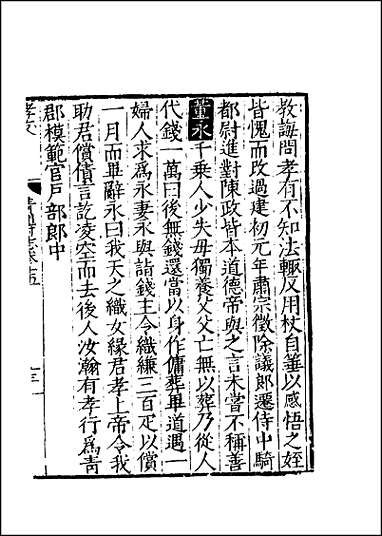 教誨問孝有不知法輙反用杖自箠以感悟之姪
皆愧而改過建初元年肅宗徵除議郎遷侍中騎
都尉進對陳政皆本道德帝與之言未嘗不稱善
董永千乗人少失母獨養父父亡無以葬乃從人
代錢一萬曰後無錢還當以身作傭葬畢道遇一
婦人求為永妻永與詣錢主令織縑三百疋以償
一月而畢辭永曰我天之織女緣君孝上帝令我
助君償債言訖凌空而去後人汝翰有孝行為青
郡模範官戸部郎中